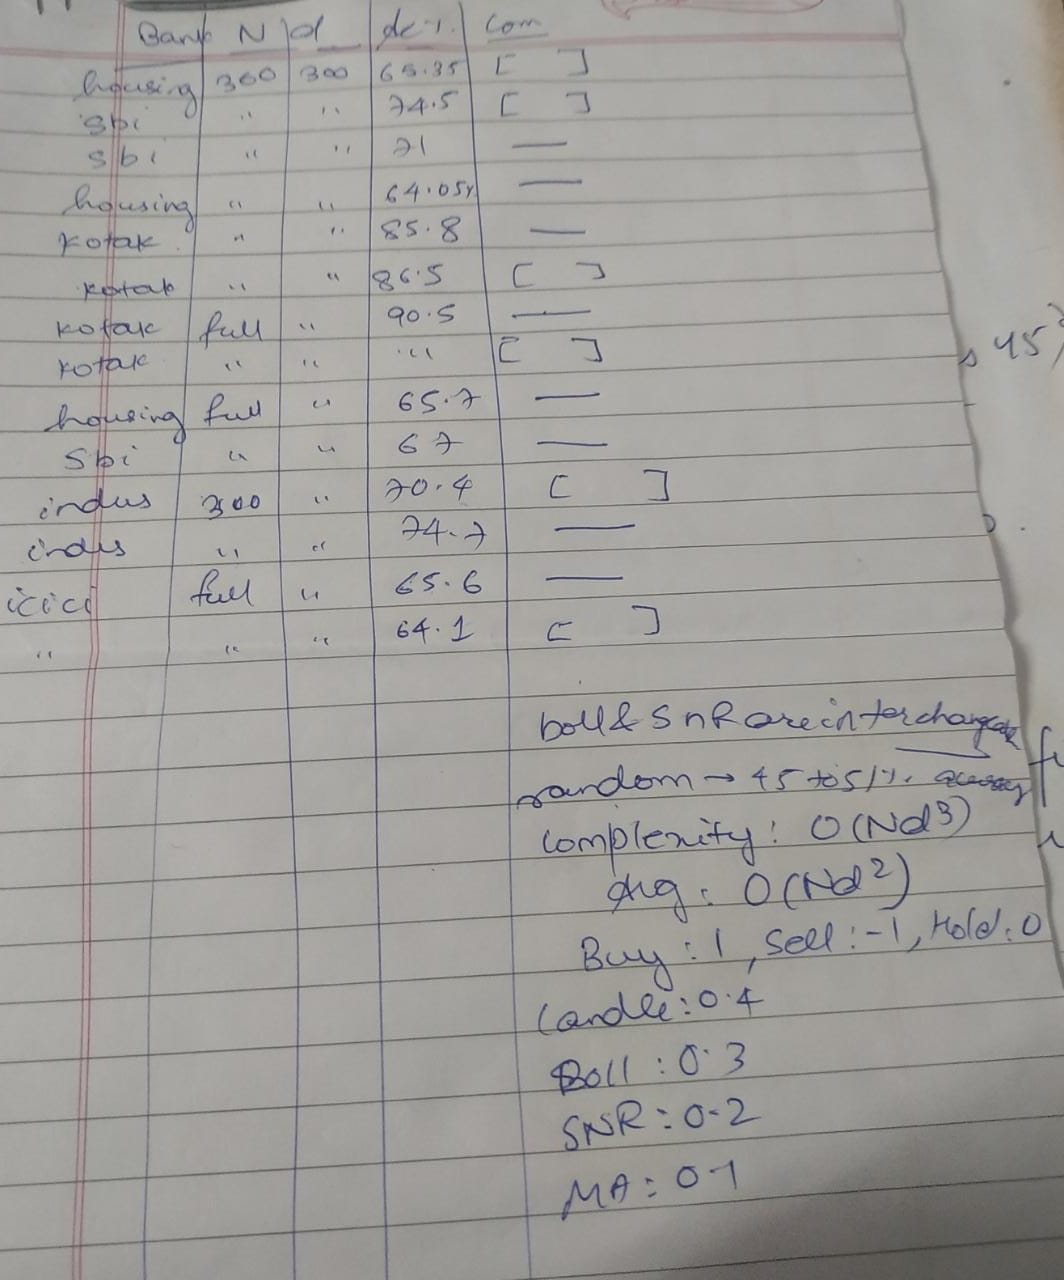 Bank N d de%. Com
housing 300 300 65.35 [ ]
sbi " " 74.5 [ ]
sbi " " 71 —
housing " " 64.05% —
kotak " " 85.8 —
kotak " " 86.5 [ ]
kotak full " 90.5 —
kotak " " " [ ]
housing full " 65.7 —
sbi " " 67 —
indus 300 " 70.4 [ ]
indus " " 74.7 —
icici full " 65.6 —
" " " 64.1 [ ]
45
boll & SnR are interchangeable
random → 45 to 51%.
Complexity: O(Nd³)
Avg: O(Nd²)
Buy: 1, Sell: -1, Hold: 0
Candle: 0.4
Boll: 0.3
SNR: 0.2
MA: 0.1